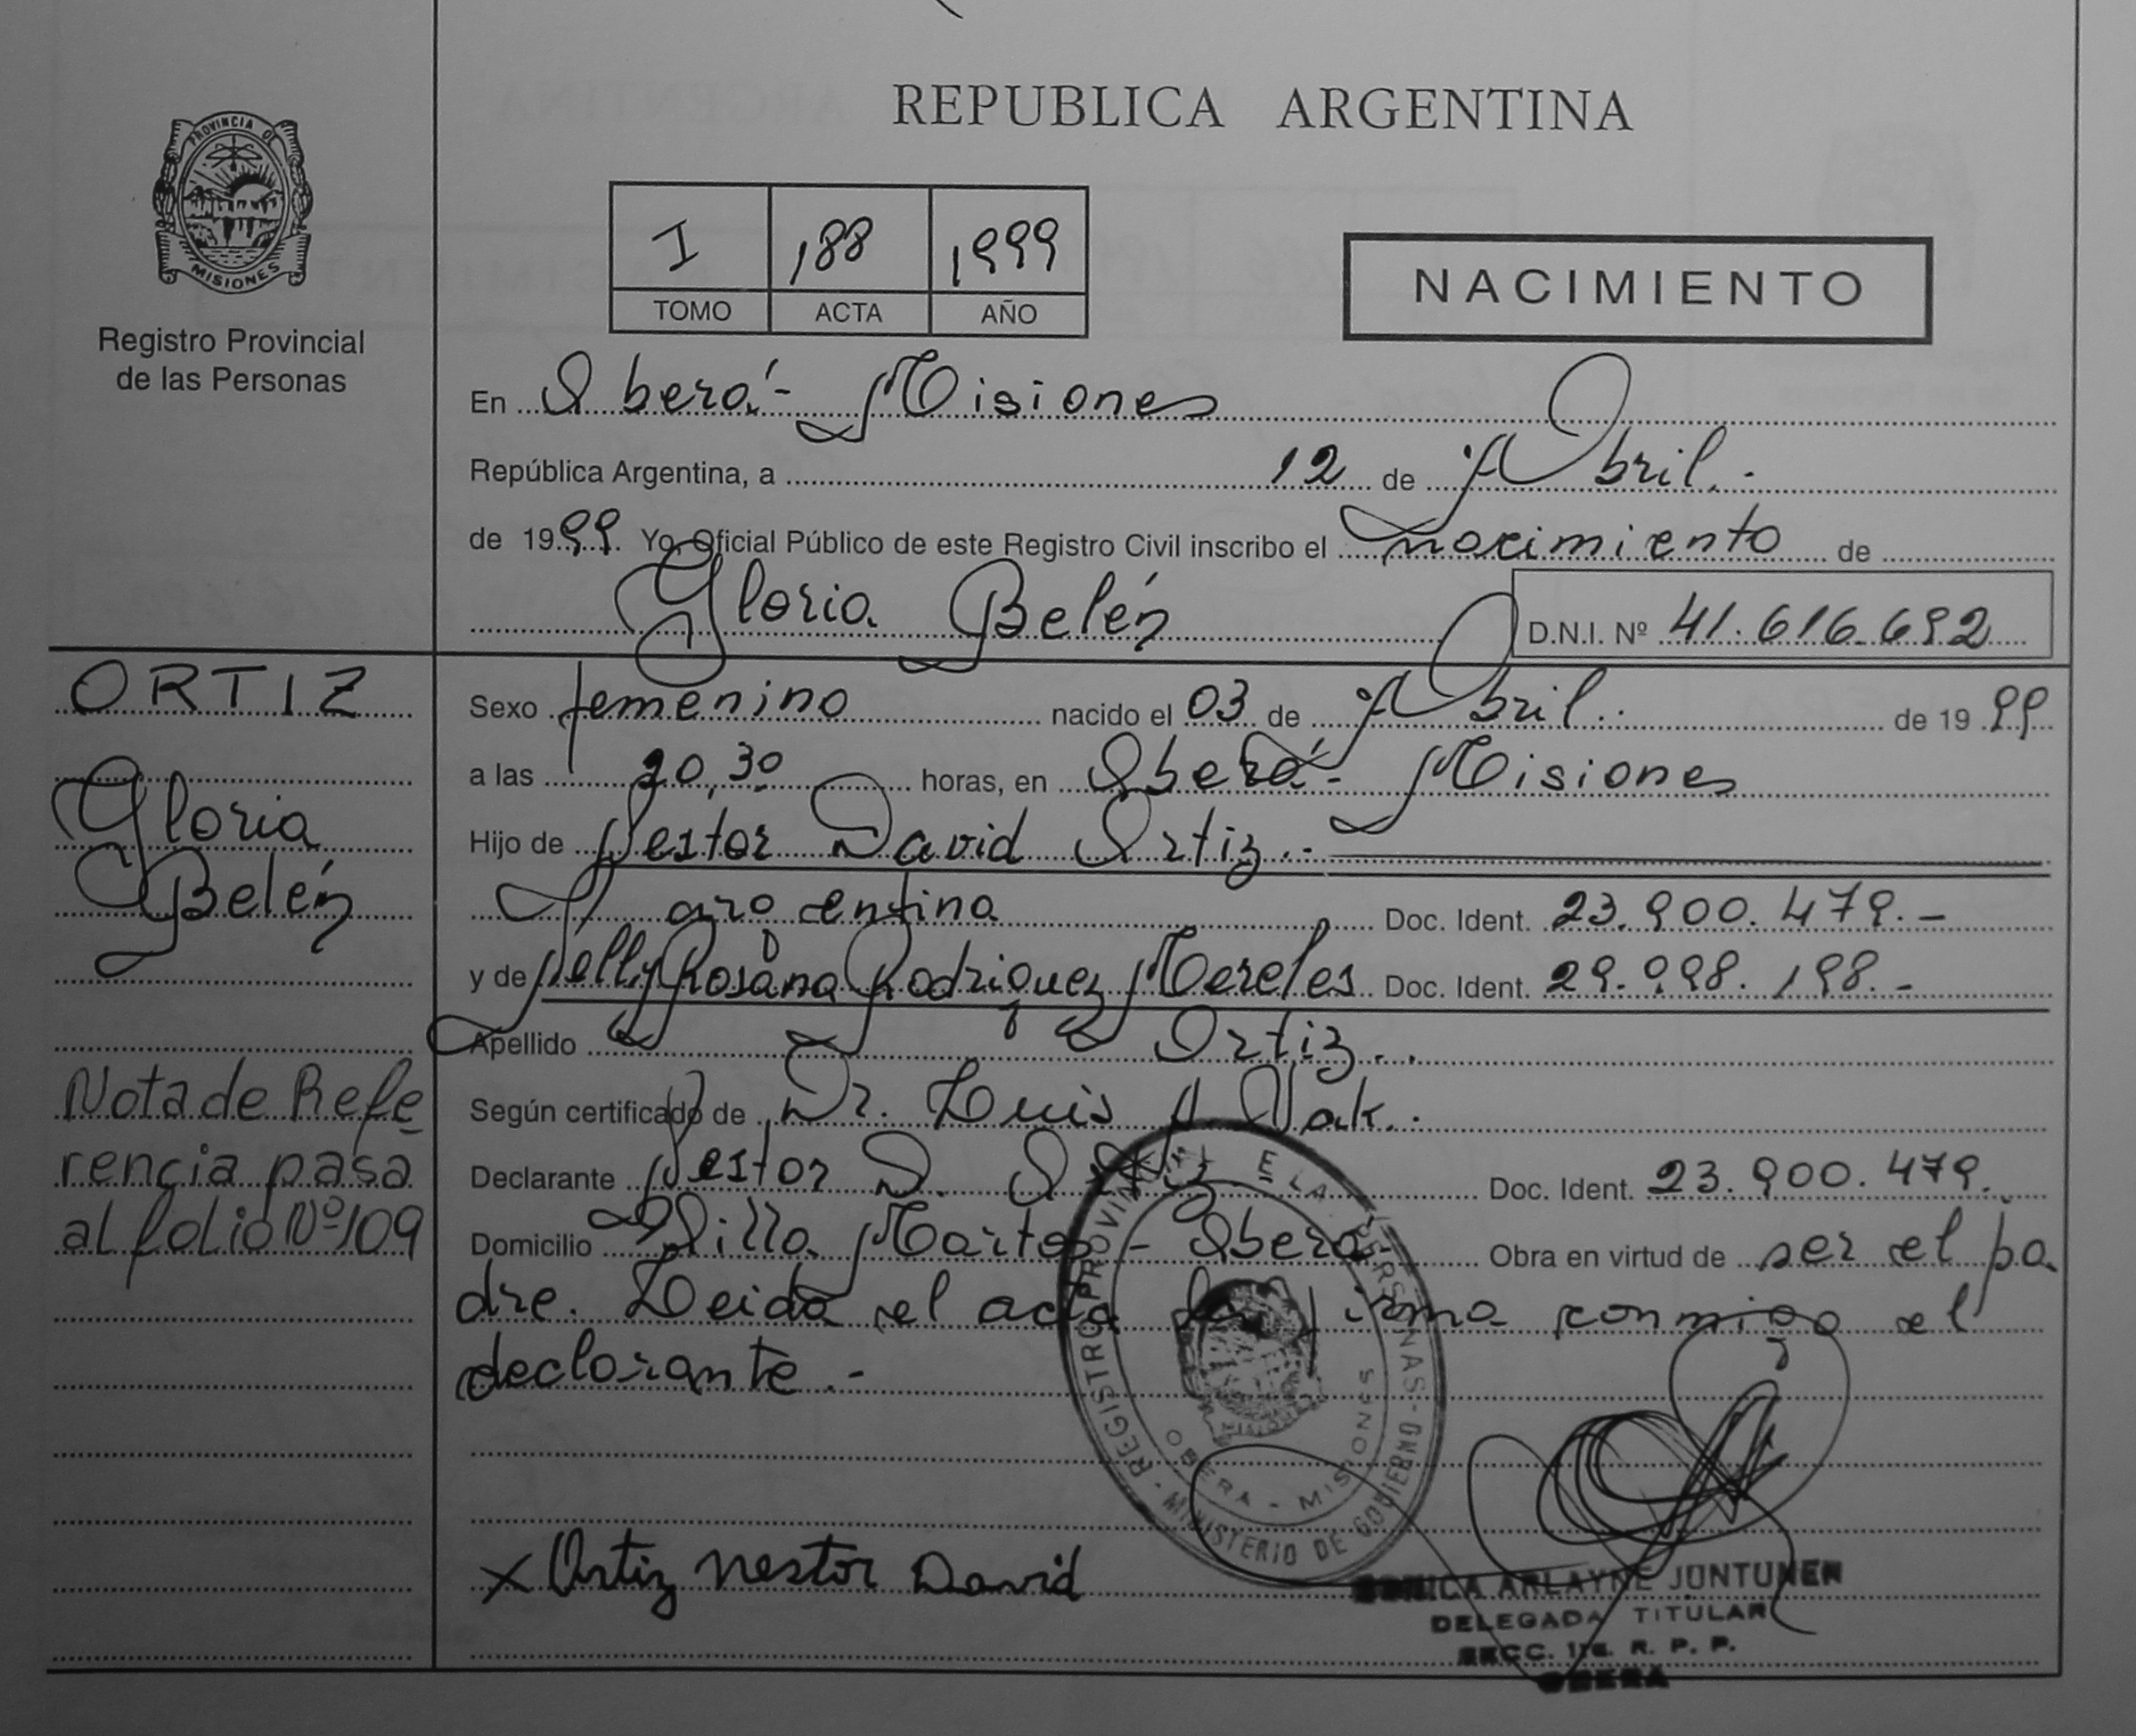 REPUBLICA ARGENTINA
PROVINCIA DE
MISIONES
Registro Provincial
de las Personas
I 188 1999
TOMO ACTA AÑO
NACIMIENTO
En Oberá - Misiones
República Argentina, a 12 de Abril.-
de 1999 Yo, Oficial Público de este Registro Civil inscribo el nacimiento de
Gloria Belén D.N.I. Nº 41.616.692
ORTIZ
Gloria
Belén
Nota de Refe
rencia pasa
al folio Nº 109
Sexo femenino nacido el 03 de Abril.. de 19 99
a las 20,30 horas, en Oberá - Misiones
Hijo de Nestor David Ortiz.-
argentina Doc. Ident. 23.900.479.-
y de Nelly Rosana Rodriguez Mereles Doc. Ident. 29.998.198.-
Apellido Ortiz..
Según certificado de Dr. Luis A.
Declarante Nestor D. Ortiz Doc. Ident. 23.900.479.
Domicilio Villa Martos - Oberá- Obra en virtud de ser el pa
dre. Leida el acta la firma conmigo el
declarante.-
REGISTRO PROVINCIAL E LA PERSONAS - MINISTERIO DE GOBIERNO
OBERA - MISIONES
x Ortiz nestor David
ARLAYNE JUNTUNEN
DELEGADA TITULAR
SECC. R. P. P.
OBERA